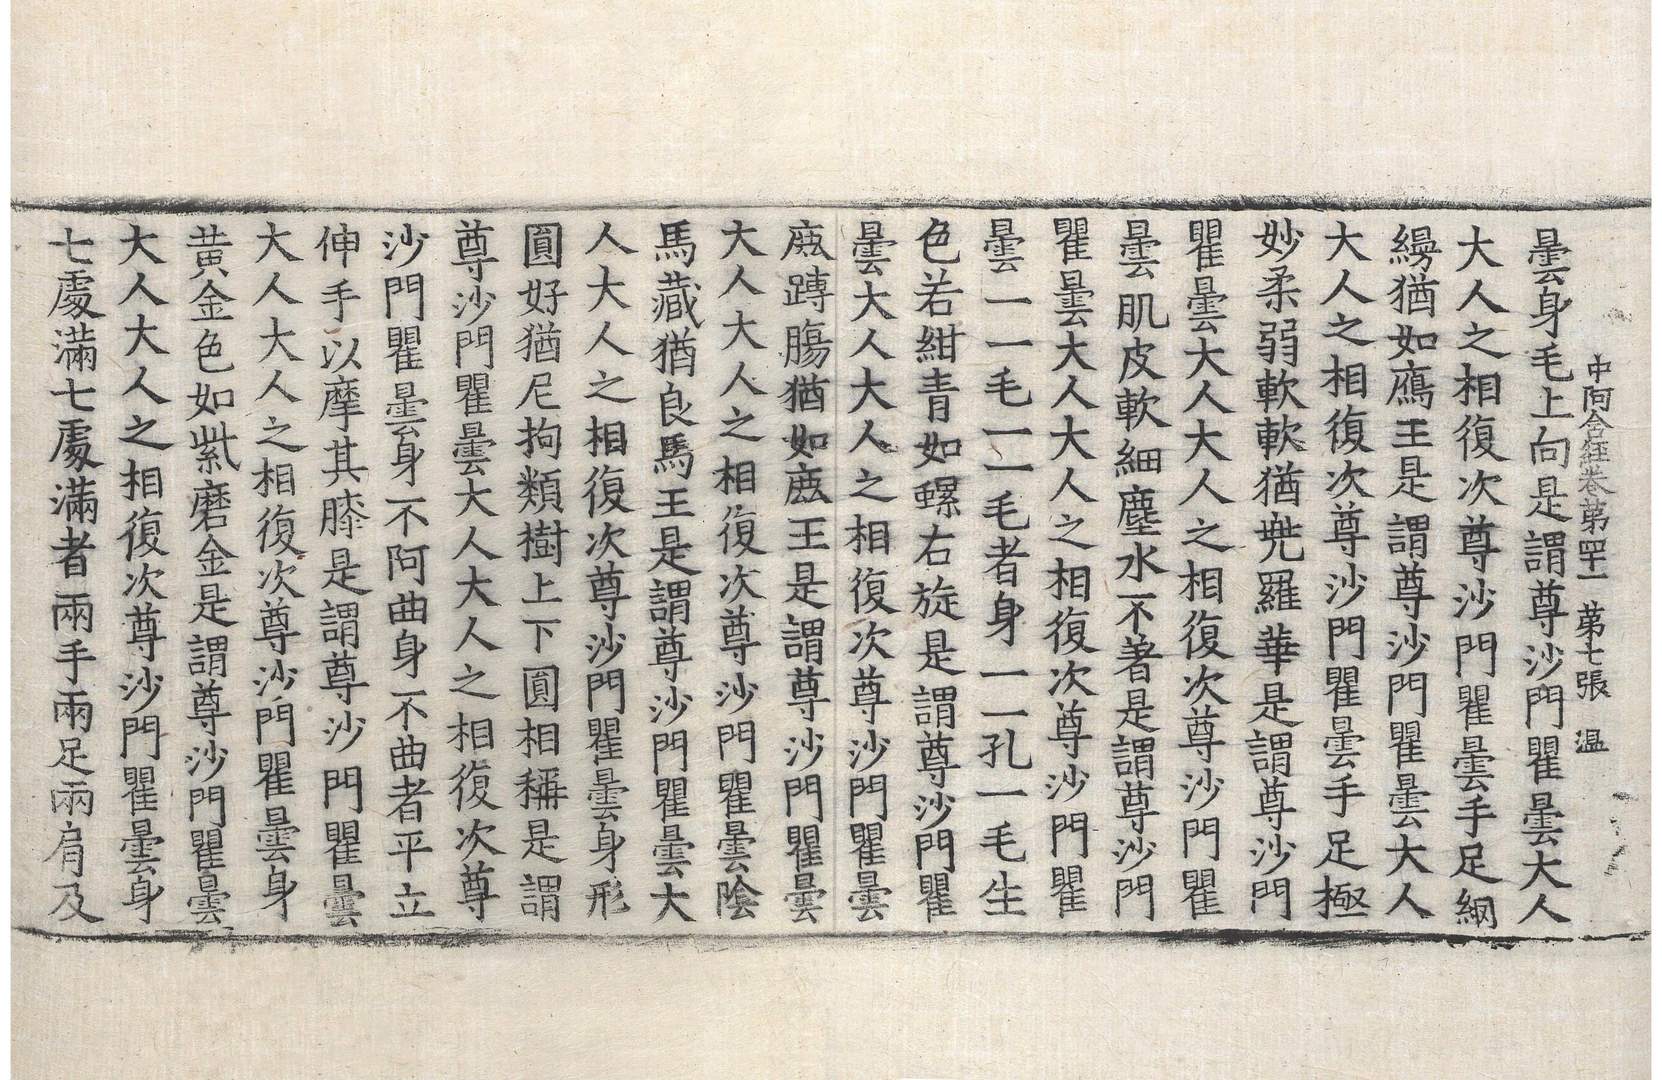 中阿含経卷第四十一 第七張 温
曇身毛上向是謂尊沙門瞿曇大人
大人之相復次尊沙門瞿曇手足網
縵猶如鴈王是謂尊沙門瞿曇大人
大人之相復次尊沙門瞿曇手足極
妙柔弱軟軟猶兠羅華是謂尊沙門
瞿曇大人大人之相復次尊沙門瞿
曇肌皮軟細塵水不著是謂尊沙門
瞿曇大人大人之相復次尊沙門瞿
曇一一毛一一毛者身一一孔一毛生
色若紺青如螺右旋是謂尊沙門瞿
曇大人大人之相復次尊沙門瞿曇
鹿䏝腸猶如鹿王是謂尊沙門瞿曇
大人大人之相復次尊沙門瞿曇陰
馬藏猶良馬王是謂尊沙門瞿曇大
人大人之相復次尊沙門瞿曇身形
圓好猶尼拘類樹上下圓相稱是謂
尊沙門瞿曇大人大人之相復次尊
沙門瞿曇身不阿曲身不曲者平立
伸手以摩其膝是謂尊沙門瞿曇
大人大人之相復次尊沙門瞿曇身
黄金色如紫磨金是謂尊沙門瞿曇
大人大人之相復次尊沙門瞿曇身
七處滿七處滿者兩手兩足兩肩及